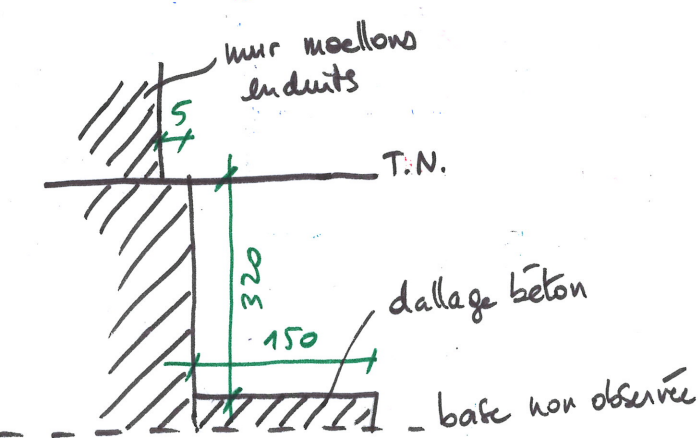 mur moellons
enduits
5
T.N.
320
dallage béton
150
base non observée